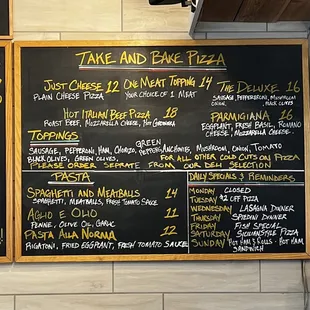 TAKE AND BAKE PIZZA
JUST CHEESE 12
PLAIN CHEESE PIZZA
ONE MEAT TOPPING 14
YOUR CHOICE OF 1 MEAT
THE DELUXE 16
SAUSAGE, PEPPERONI, MUSHROOM
ONION, BLACK OLIVES
HOT ITALIAN BEEF PIZZA 18
ROAST BEEF, MOZZARELLA CHEESE, HOT GIARDINIERA
PARMIGIANA 16
EGGPLANT, FRESH BASIL, ROMANO
CHEESE, MOZZARELLA CHEESE
TOPPINGS
SAUSAGE, PEPPERONI, HAM, CHORIZO, GREEN PEPPERS, ANCHOVIES, MUSHROOM, ONION, TOMATO
BLACK OLIVES, GREEN OLIVES,
FOR ALL OTHER COLD CUTS ON PIZZA
PLEASE ORDER SEPRATE FROM OUR DELI SELECTION
PASTA
SPAGHETTI AND MEATBALLS 14
SPAGHETTI, MEATBALLS, FRESH TOMATO SAUCE
AGLIO E OLIO 11
PENNE, OLIVE OIL, GARLIC
PASTA ALLA NORMA 12
RIGATONI, FRIED EGGPLANT, FRESH TOMATO SAUCE
DAILY SPECIALS & REMINDERS
MONDAY CLOSED
TUESDAY $2 OFF PIZZA
WEDNESDAY LASAGNA DINNER
THURSDAY SPIEDINI DINNER
FRIDAY FISH SPECIAL
SATURDAY SICILIAN STYLE PIZZA
SUNDAY HOT HAM & ROLLS - HOT HAM
SANDWICH